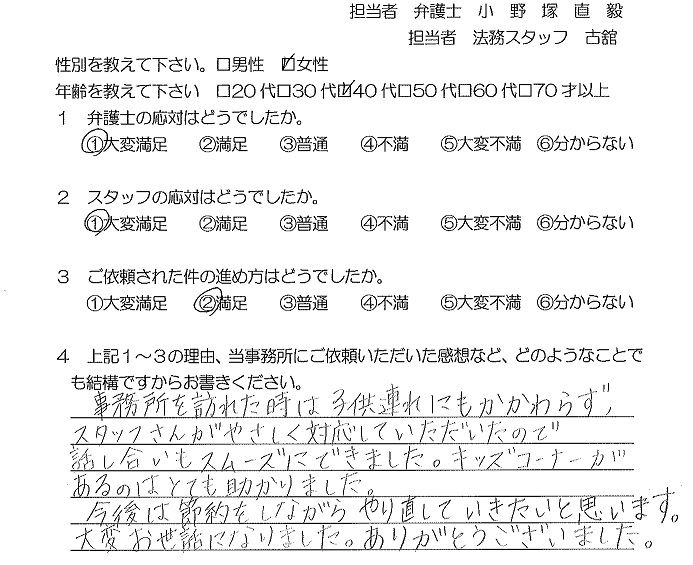 担当者　弁護士　小　野　塚　直　毅
担当者　法務スタッフ　古舘
性別を教えて下さい。□男性　☑女性
年齢を教えて下さい　□20代□30代☑40代□50代□60代□70才以上
1　弁護士の応対はどうでしたか。
①大変満足　②満足　③普通　④不満　⑤大変不満　⑥分からない
2　スタッフの応対はどうでしたか。
①大変満足　②満足　③普通　④不満　⑤大変不満　⑥分からない
3　ご依頼された件の進め方はどうでしたか。
①大変満足　②満足　③普通　④不満　⑤大変不満　⑥分からない
4　上記1～3の理由、当事務所にご依頼いただいた感想など、どのようなことで
も結構ですからお書きください。
事務所を訪れた時は子供連れにもかかわらず、
スタッフさんがやさしく対応していただいたので
話し合いもスムーズにできました。キッズコーナーが
あるのはとても助かりました。
今後は節約をしながらやり直していきたいと思います。
大変お世話になりました。ありがとうございました。